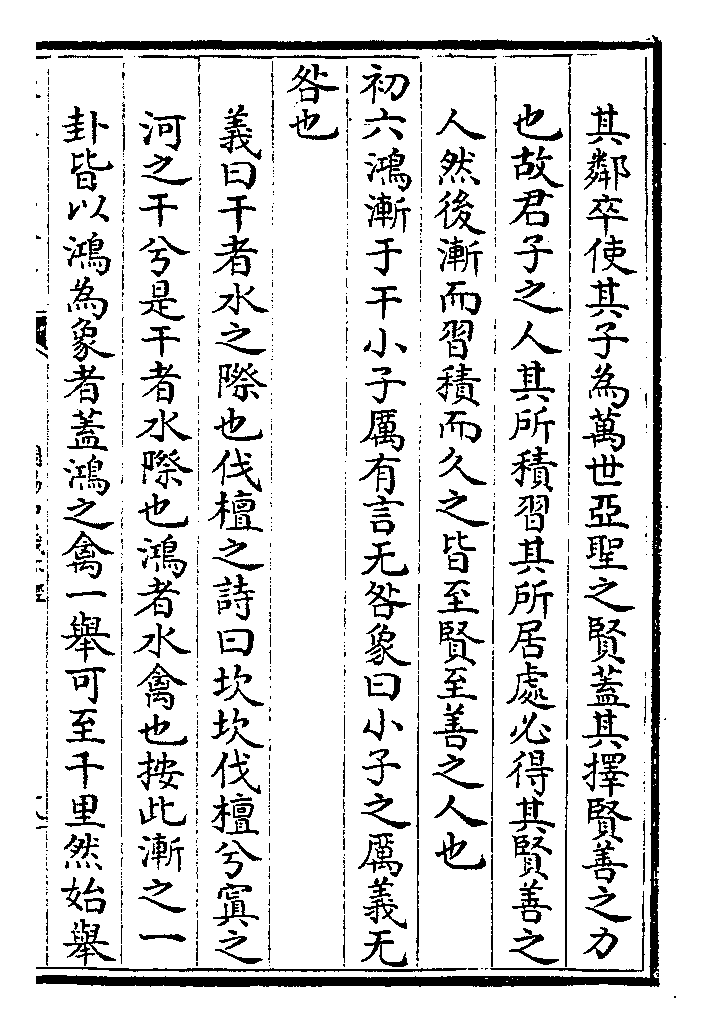 其鄰卒使其子為萬世亞聖之賢蓋其擇賢善之力
也故君子之人其所積習其所居處必得其賢善之
人然後漸而習積而久之皆至賢至善之人也
初六鴻漸于干小子厲有言无咎象曰小子之厲義无
咎也
義曰干者水之際也伐檀之詩曰坎坎伐檀兮寘之
河之干兮是干者水際也鴻者水禽也按此漸之一
卦皆以鴻為象者蓋鴻之禽一舉可至千里然始舉